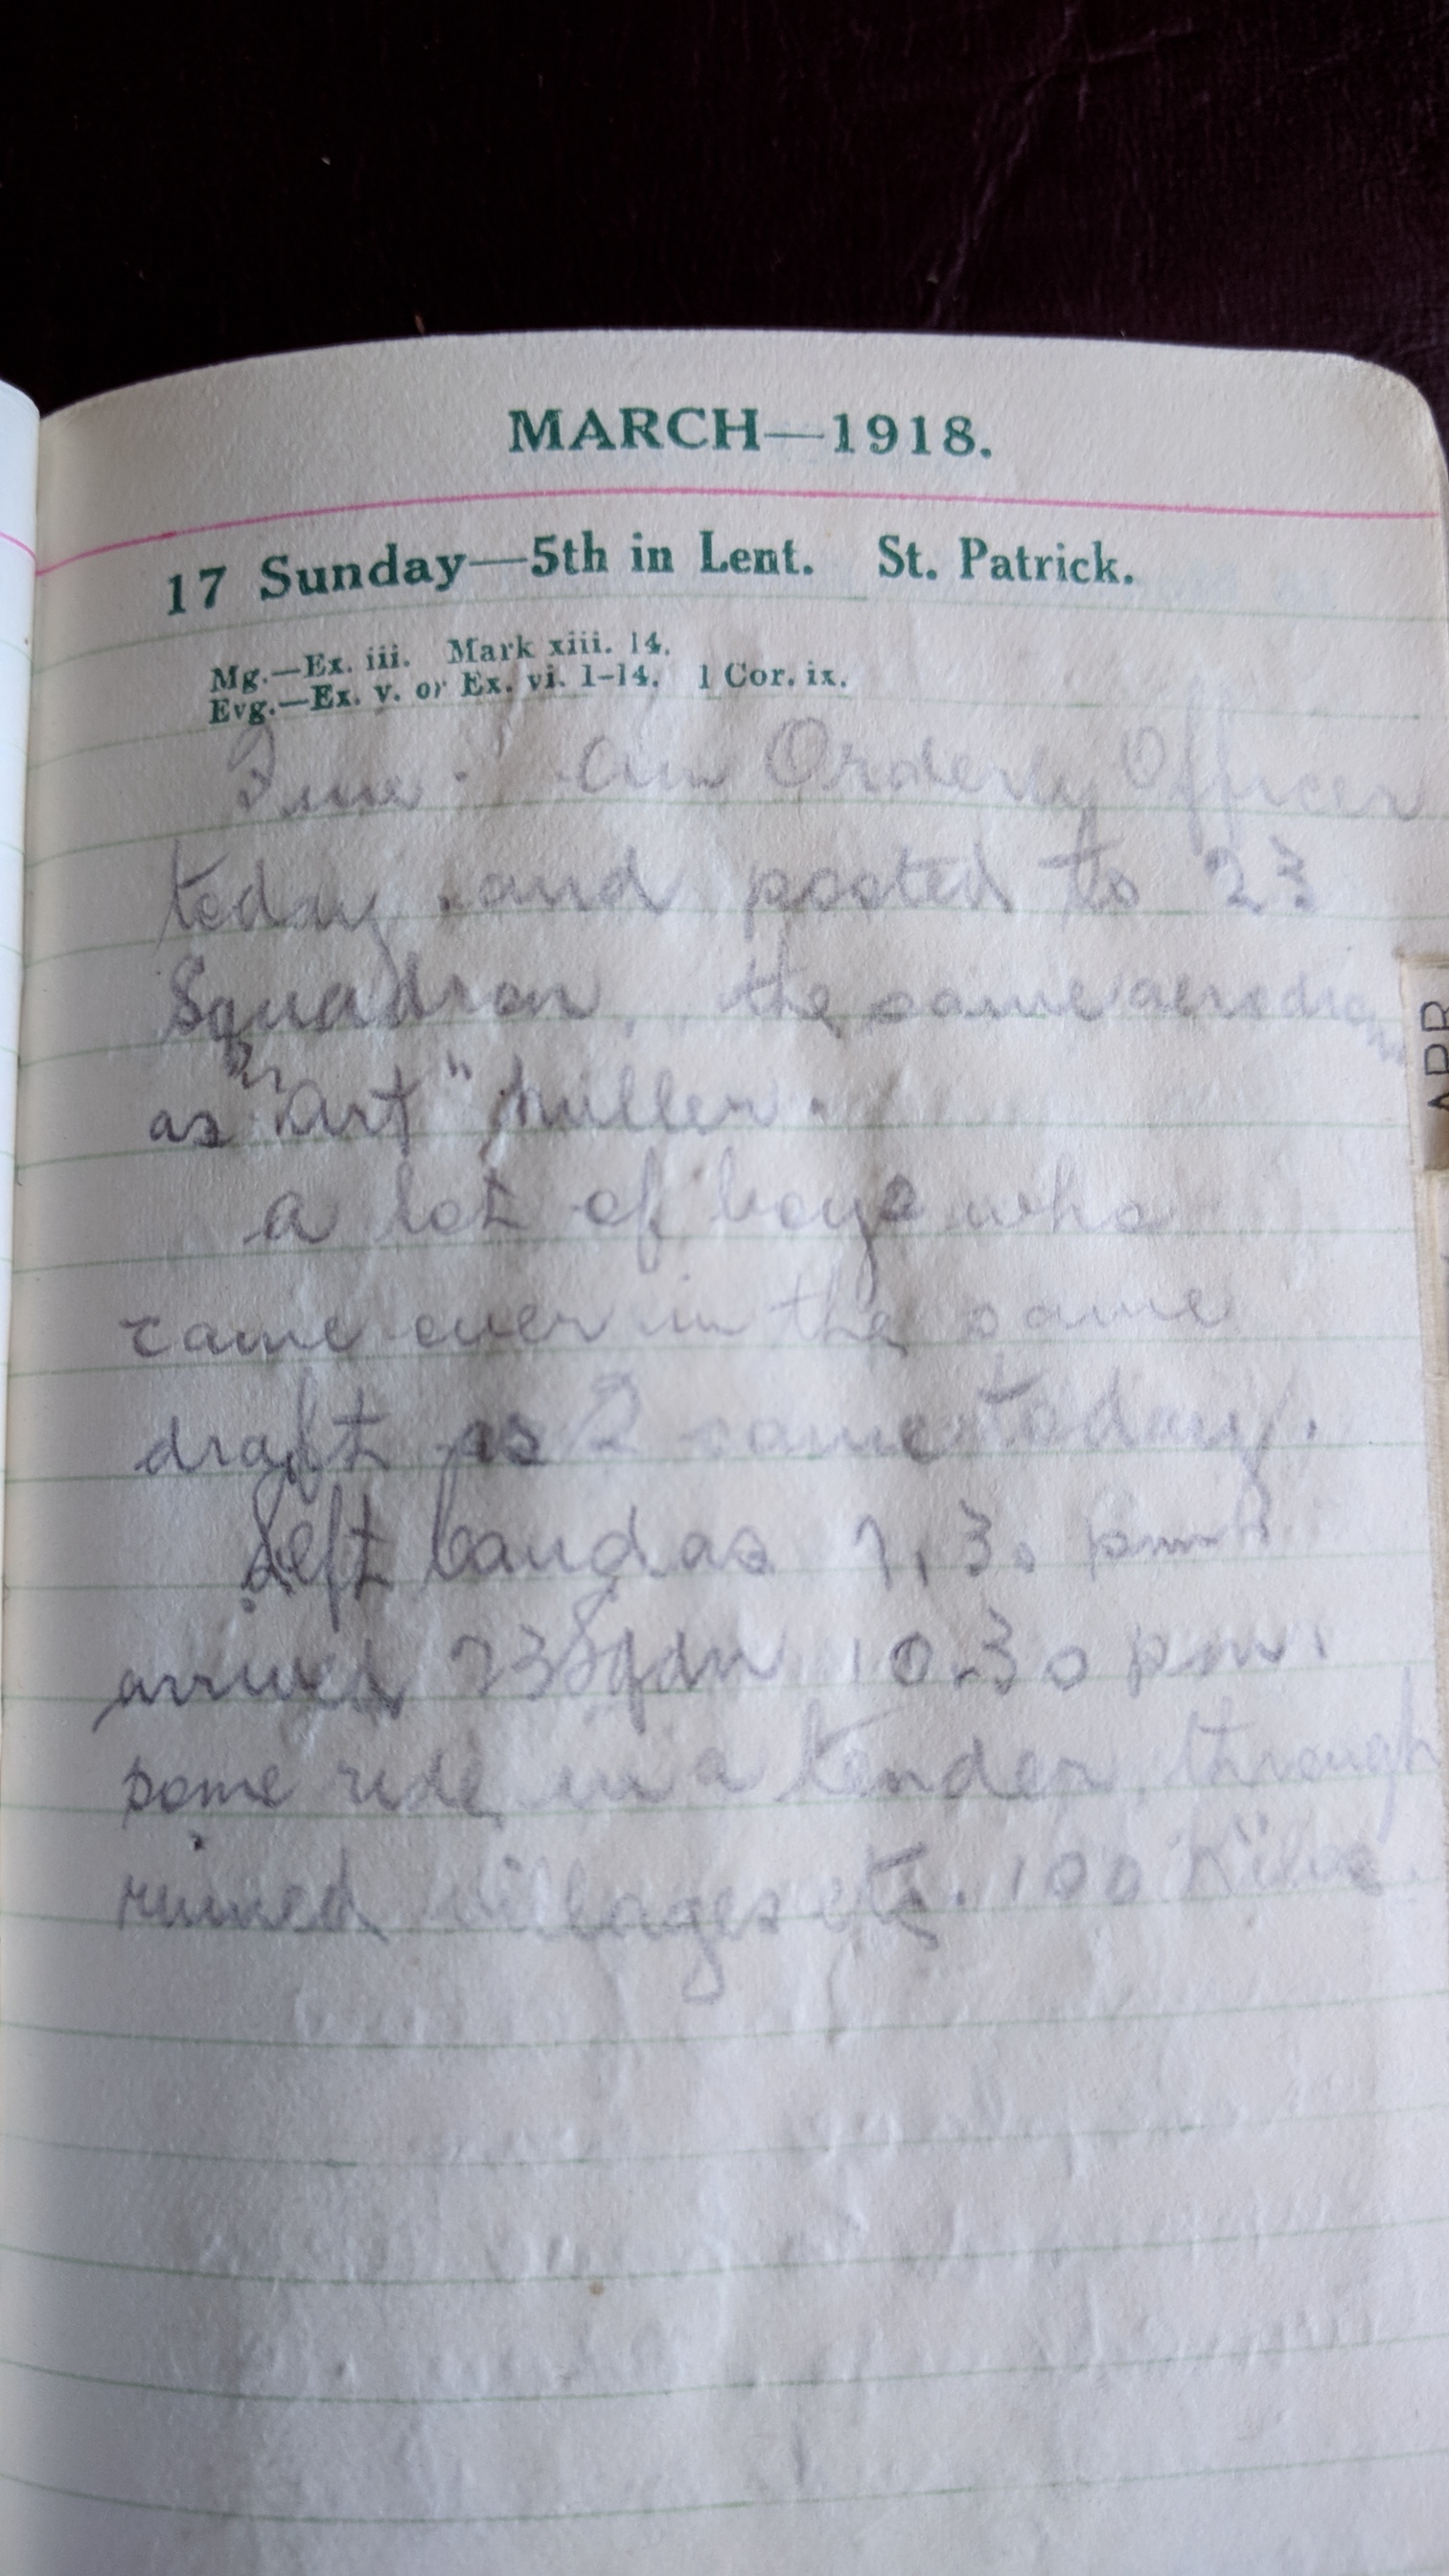 MARCH—1918.
17 Sunday—5th in Lent. St. Patrick.
Mg.—Ex. iii. Mark xiii. 14.
Evg.—Ex. v. or Ex. vi. 1–14. 1 Cor. ix.
Fine. Am Orderly Officer
today and posted to 23
Squadron, the same aerodrom
as "Art" Muller.
a lot of boys who
came over in the same
draft as I came today.
Left Candas 7,30 pm
arrived 23 Sqdn 10.30 pm.
some ride in a tender, through
ruined villages etc. 100 Kilos.
APR